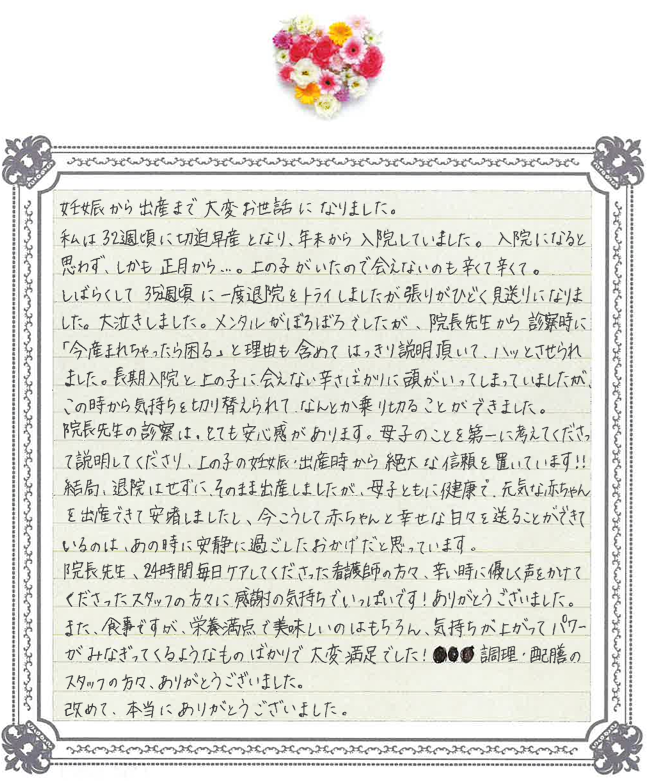 妊娠から出産まで大変お世話になりました。
私は32週頃に切迫早産となり、年末から入院していました。入院になると
思わず、しかも正月から…。上の子がいたので会えないのも辛くて辛くて。
しばらくして35週頃に一度退院をトライしましたが張りがひどく見送りになりま
した。大泣きしました。メンタルがぼろぼろでしたが、院長先生から診察時に
「今産まれちゃったら困る」と理由も含めてはっきり説明頂いて、ハッとさせられ
ました。長期入院と上の子に会えない辛さばかりに頭がいってしまっていましたが、
この時から気持ちを切り替えられてなんとか乗り切ることができました。
院長先生の診察は、とても安心感があります。母子のことを第一に考えてくださっ
て説明してくださり、上の子の妊娠・出産時から絶大な信頼を置いています!!
結局、退院はせずに、そのまま出産しましたが、母子ともに健康で、元気な赤ちゃん
を出産できて安堵しましたし、今こうして赤ちゃんと幸せな日々を送ることができて
いるのは、あの時に安静に過ごしたおかげだと思っています。
院長先生、24時間毎日ケアしてくださった看護師の方々、辛い時に優しく声をかけて
くださったスタッフの方々に感謝の気持ちでいっぱいです!ありがとうございました。
また、食事ですが、栄養満点で美味しいのはもちろん、気持ちが上がってパワー
がみなぎってくるようなものばかりで大変満足でした! 調理・配膳の
スタッフの方々、ありがとうございました。
改めて、本当にありがとうございました。